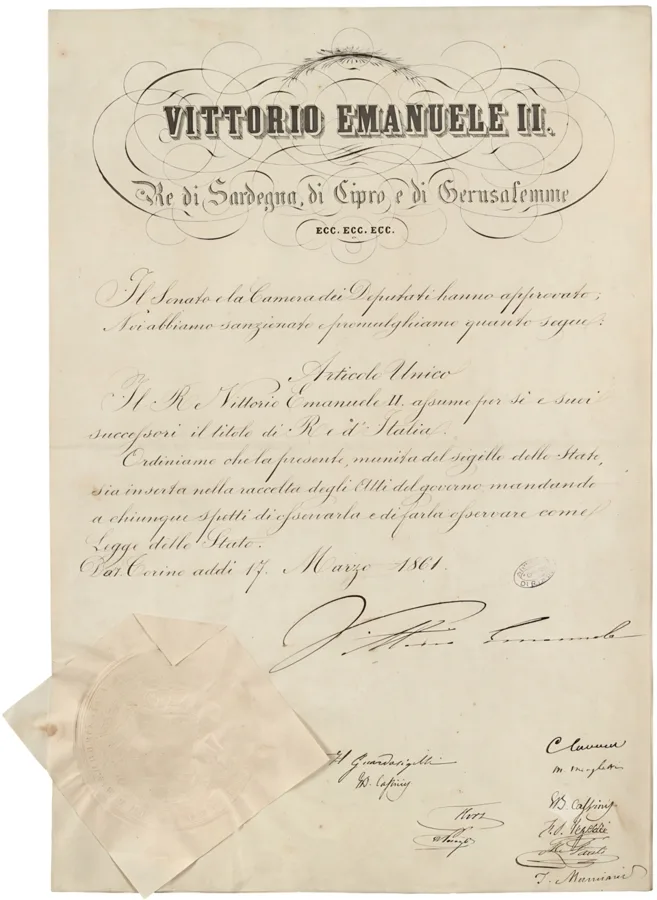 VITTORIO EMANUELE II.
Re di Sardegna, di Cipro e di Gerusalemme
ECC. ECC. ECC.
Il Senato e la Camera dei Deputati hanno approvato;
Noi abbiamo sanzionato e promulghiamo quanto segue:
Articolo Unico
Il Re Vittorio Emanuele II. assume per sè e suoi
successori il titolo di Re d'Italia.
Ordiniamo che la presente, munita del sigillo dello Stato,
sia inserta nella raccolta degli Atti del governo, mandando
a chiunque spetti di osservarla e di farla osservare come
Legge dello Stato.
Dat. Torino addi 17. Marzo 1861.
Vittorio Emanuele
C Cavour
Il Guardasigilli
M. Minghetti
GB. Cassinis
GB. Cassinis
T. Mamiani